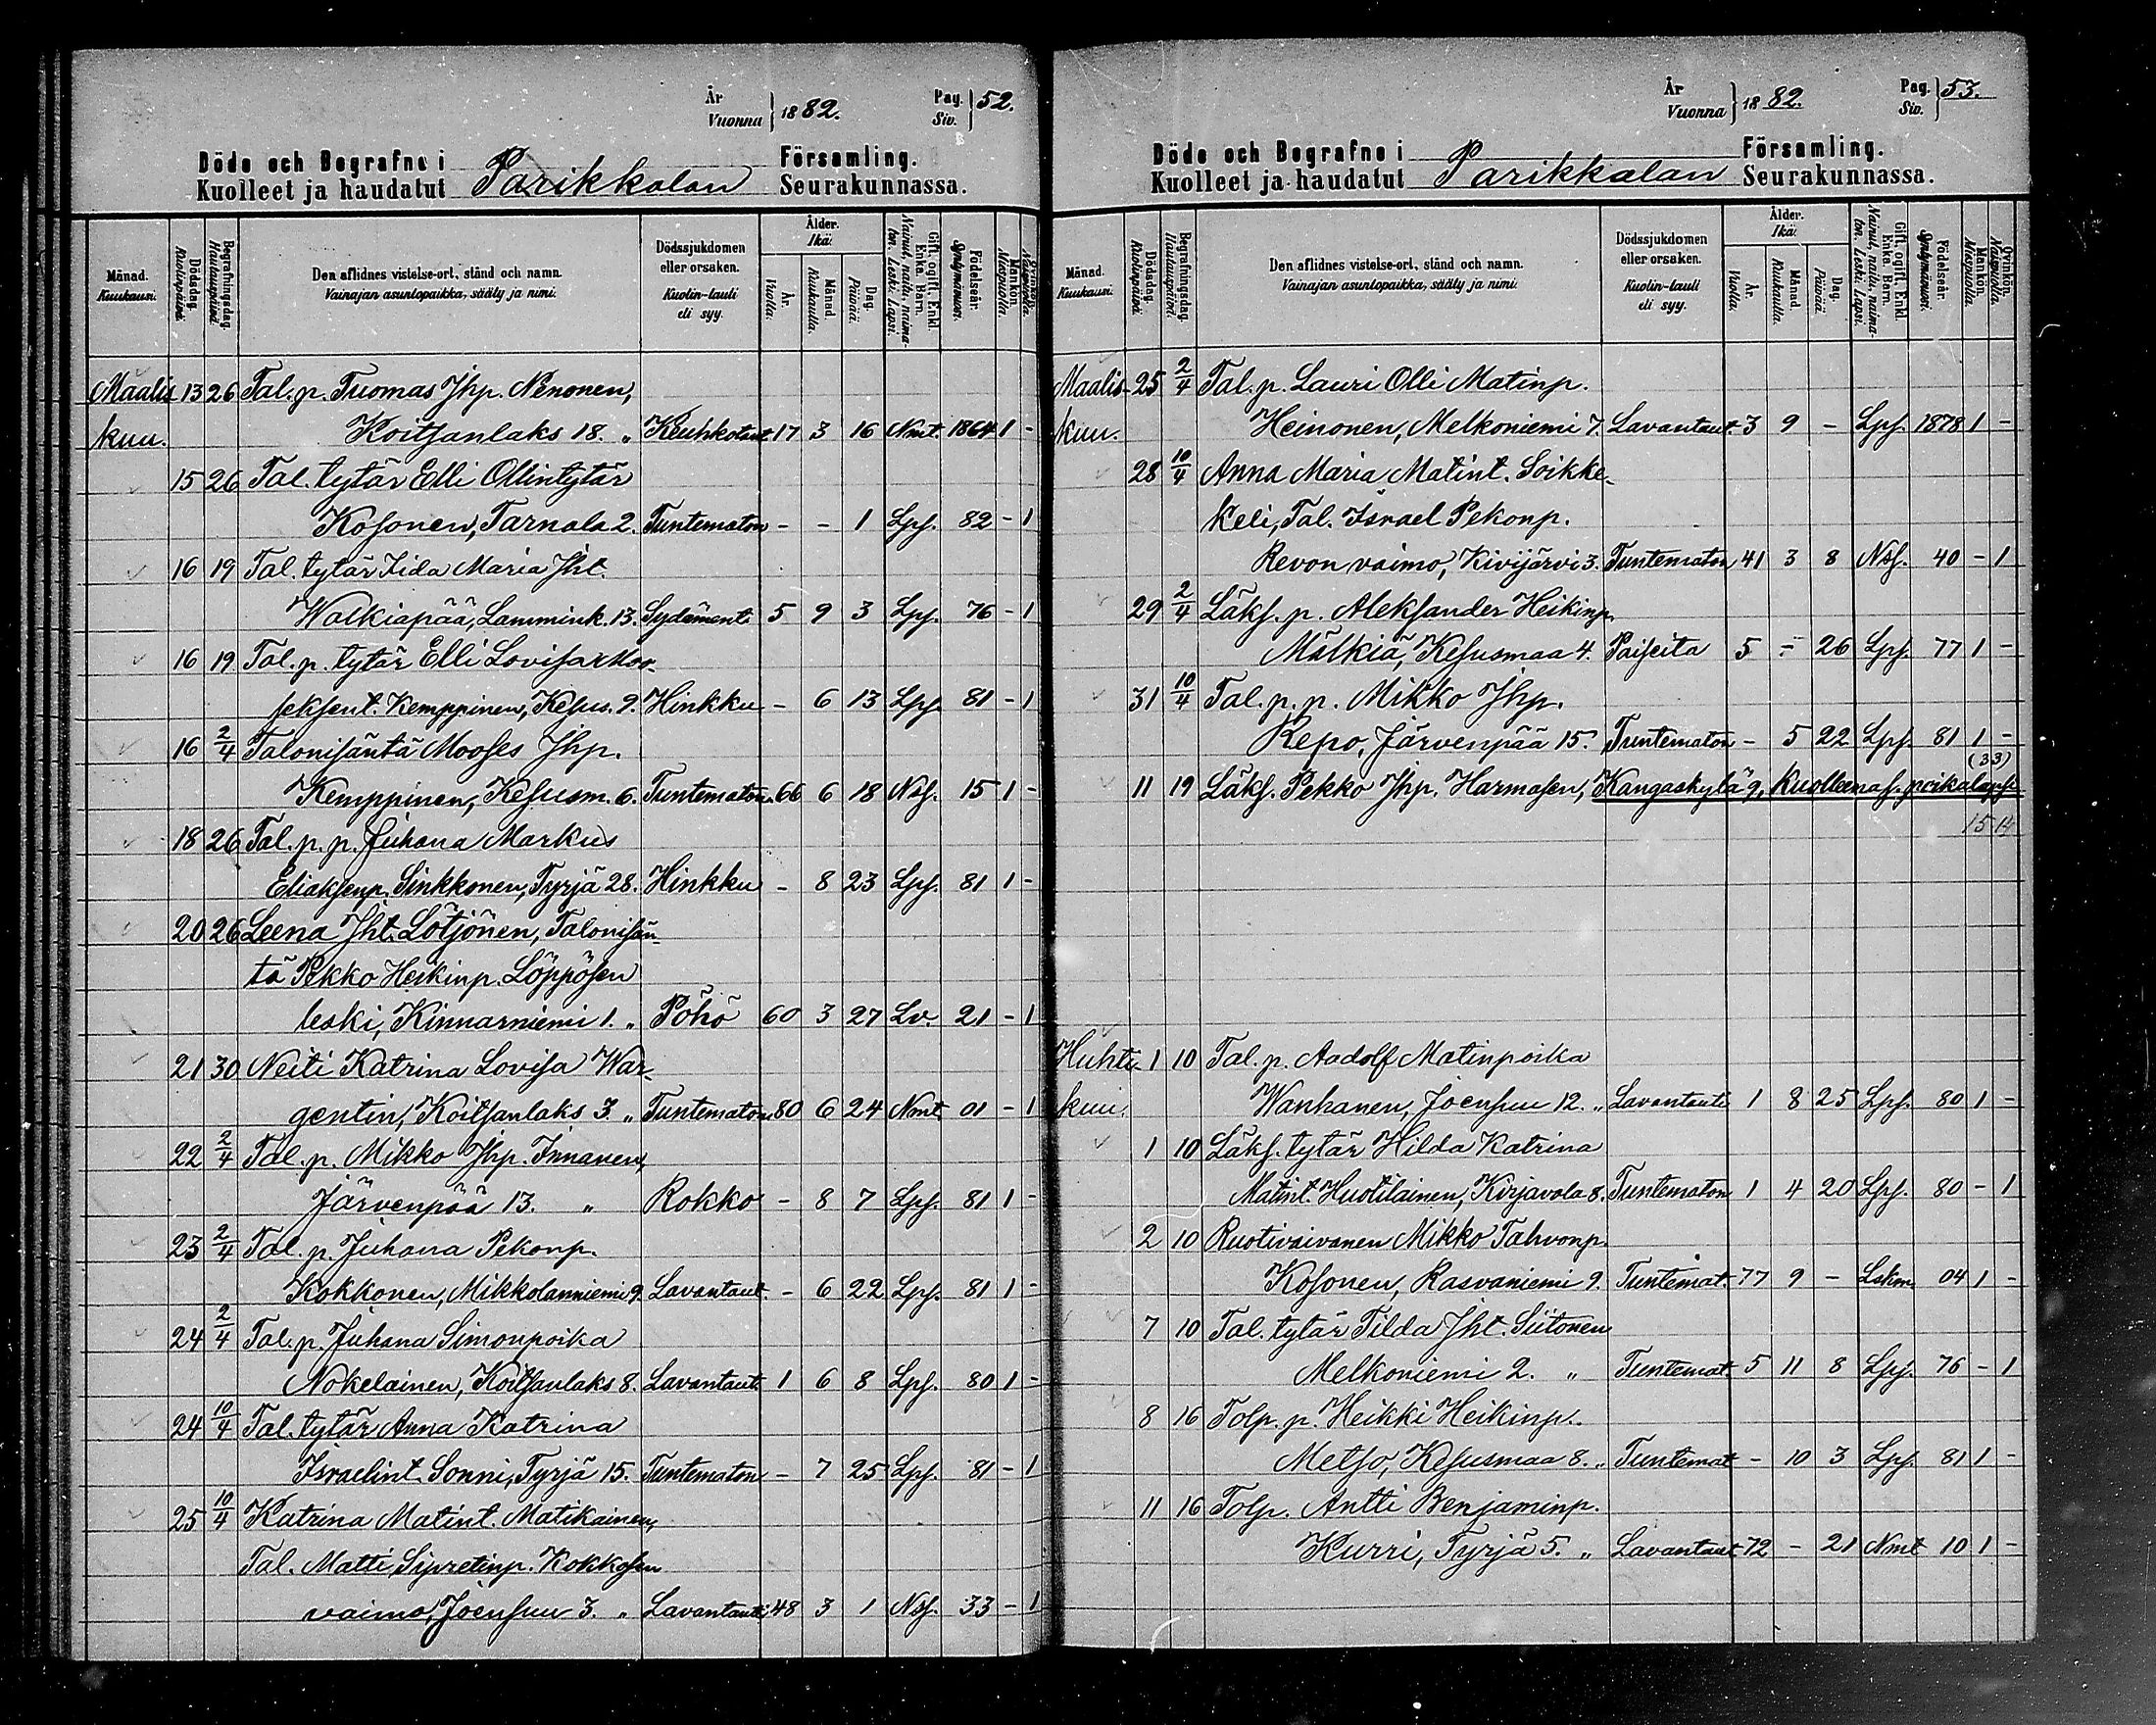 År
Vuonna } 1882.
Pag.
Siv. } 52.
Döde och Begrafne i Församling.
Kuolleet ja haudatut Parikkalan Seurakunnassa.
Månad. Kuukausi.
Dödsdag. Kuolinpäivä.
Begrafningsdag. Hautauspäivä.
Den aflidnes vistelse-ort, stånd och namn.
Vainajan asuntopaikka, sääty ja nimi.
Dödssjukdomen eller orsaken.
Kuolin-tauti eli syy.
Ålder. Ikä:
År. Vuotta.
Månad. Kuukautta.
Dag. Päivää.
Gift, ogift, Enkl. Enka, Barn.
Nainut, naitu, naimaton. Leski. Lapsi.
Födelseår. Syntymävuosi.
Mankön. Miespuolia.
Qvinkön. Naispuolia.
Maalis 13 26 Tal. p. Tuomas Jhp. Nenonen,
kuu. Koitsanlaks 18. „ Keuhkotaut. 17 3 16 Nmt. 1864 1 -
15 26 Tal. tytär Elli Ollintytär
Kosonen, Tarnala 2. Tuntematon - - 1 Lps. 82 - 1
16 19 Tal. tytär Iida Maria Jht.
Walkiapää, Lammink. 13. Sydäment. 5 9 3 Lps. 76 - 1
16 19 Tal. p. tytär Elli Lovisa Moo-
seksent. Kemppinen, Kesus. 9. Hinkku - 6 13 Lps. 81 - 1
16 2/4 Talonisäntä Mooses Jhp.
Kemppinen, Kesusm. 6. Tuntematon 66 6 18 Nis. 15 1 -
18 26 Tal. p. p. Juhana Markus
Eliaksenp. Sinkkonen, Tyrjä 28. Hinkku - 8 23 Lps. 81 1 -
20 26 Leena Jht. Lötjönen, Talonisän-
tä Pekko Heikinp. Löppösen
leski, Kinnarniemi 1. „ Pöhö 60 3 27 Lv. 21 - 1
21 30 Neiti Katrina Lovisa War-
gentin, Koitsanlaks 3. „ Tuntematon 80 6 24 Nmt. 01 - 1
22 2/4 Tal. p. Mikko Jhp. Innanen,
Järvenpää 13. „ Rokko - 8 7 Lps. 81 1 -
23 2/4 Tal. p. Juhana Pekonp.
Kokkonen, Mikkolanniemi 9. Lavantaut. - 6 22 Lps. 81 1 -
24 2/4 Tal. p. Juhana Simonpoika
Nokelainen, Koitsanlaks 8. Lavantaut. 1 6 8 Lps. 80 1 -
24 10/4 Tal. tytär Anna Katrina
Israelint. Sonni, Tyrjä 15. Tuntematon - 7 25 Lps. 81 - 1
25 10/4 Katrina Matint. Matikainen,
Tal. Matti Sipretinp. Kokkosen
vaimo, Joensuu 3. „ Lavantauti 48 3 1 Nis. 33 - 1
År
Vuonna } 1882.
Pag.
Siv. } 53.
Döde och Begrafne i Församling.
Kuolleet ja haudatut Parikkalan Seurakunnassa.
Månad. Kuukausi.
Dödsdag. Kuolinpäivä.
Begrafningsdag. Hautauspäivä.
Den aflidnes vistelse-ort, stånd och namn.
Vainajan asuntopaikka, sääty ja nimi.
Dödssjukdomen eller orsaken.
Kuolin-tauti eli syy.
Ålder. Ikä:
År. Vuotta.
Månad. Kuukautta.
Dag. Päivää.
Gift, ogift, Enkl. Enka, Barn.
Nainut, naitu, naimaton. Leski. Lapsi.
Födelseår. Syntymävuosi.
Mankön. Miespuolia.
Qvinkön. Naispuolia.
Maalis- 25 2/4 Tal. p. Lauri Olli Matinp.
kuu. Heinonen, Melkoniemi 7. Lavantaut. 3 9 - Lps. 1878 1 -
28 10/4 Anna Maria Matint. Soikke-
keli, Tal. Israel Pekonp.
Revon vaimo, Kivijärvi 3. Tuntematon 41 3 8 Nis. 40 - 1
29 2/4 Läks. p. Aleksander Heikinp.
Mälkiä, Kesusmaa 4. Paiseita 5 - 26 Lps. 77 1 -
31 10/4 Tal. p. p. Mikko Jhp.
Repo, Järvenpää 15. Tuntematon - 5 22 Lps. 81 1 -
(33)
11 19 Läks. Pekko Jhp. Harmasen, Kangaskylä 9, kuolleenas. poikalapsi
15 14
Huhti- 1 10 Tal. p. Aadolf Matinpoika
kuu. Wanhanen, Joensuu 12. „ Lavantauti 1 8 25 Lps. 80 1 -
1 10 Läks. tytär Hilda Katrina
Matint. Huotilainen, Kirjavala 8. Tuntematon 1 4 20 Lps. 80 - 1
2 10 Ruotivaivanen Mikko Tahvonp.
Kosonen, Rasvaniemi 9. Tuntemat. 77 9 - Lskm. 04 1 -
7 10 Tal. tytär Tilda Jht. Siitonen
Melkoniemi 2. „ Tuntemat. 5 11 8 Lps. 76 - 1
8 16 Tolp. p. Heikki Heikinp.
Metso, Kesusmaa 8. „ Tuntemat - 10 3 Lps. 81 1 -
11 16 Tolp. Antti Benjaminp.
Kurri, Tyrjä 5. „ Lavantaut 72 - 21 Nmt 10 1 -